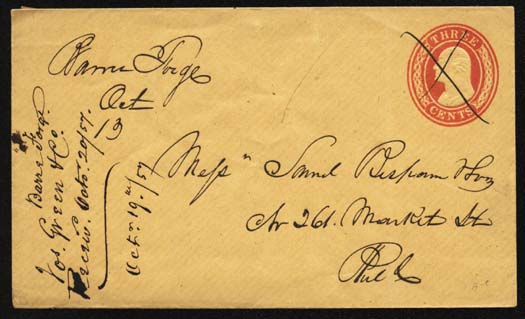 Barre Forge
Oct
13
THREE
CENTS
Mess^rs Saml Bispham & Son
No 261. Market St
Phil^a
Barre Forge
Jos. Green & Co.
Receiv. Octo. 20/57.
Oct. 19. /57